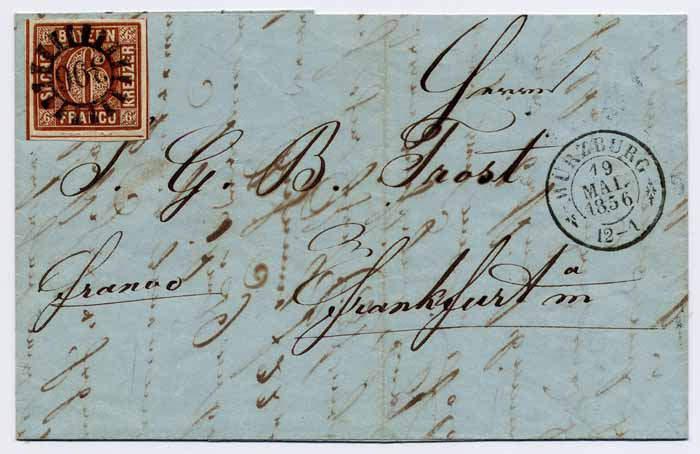 BAYERN
SECHS 6 KREUZER
FRANCO
Herrn
J. G. B. Trost
WÜRZBURG
19
MAI.
1856
12-1
Franco
Frankfurt a/m